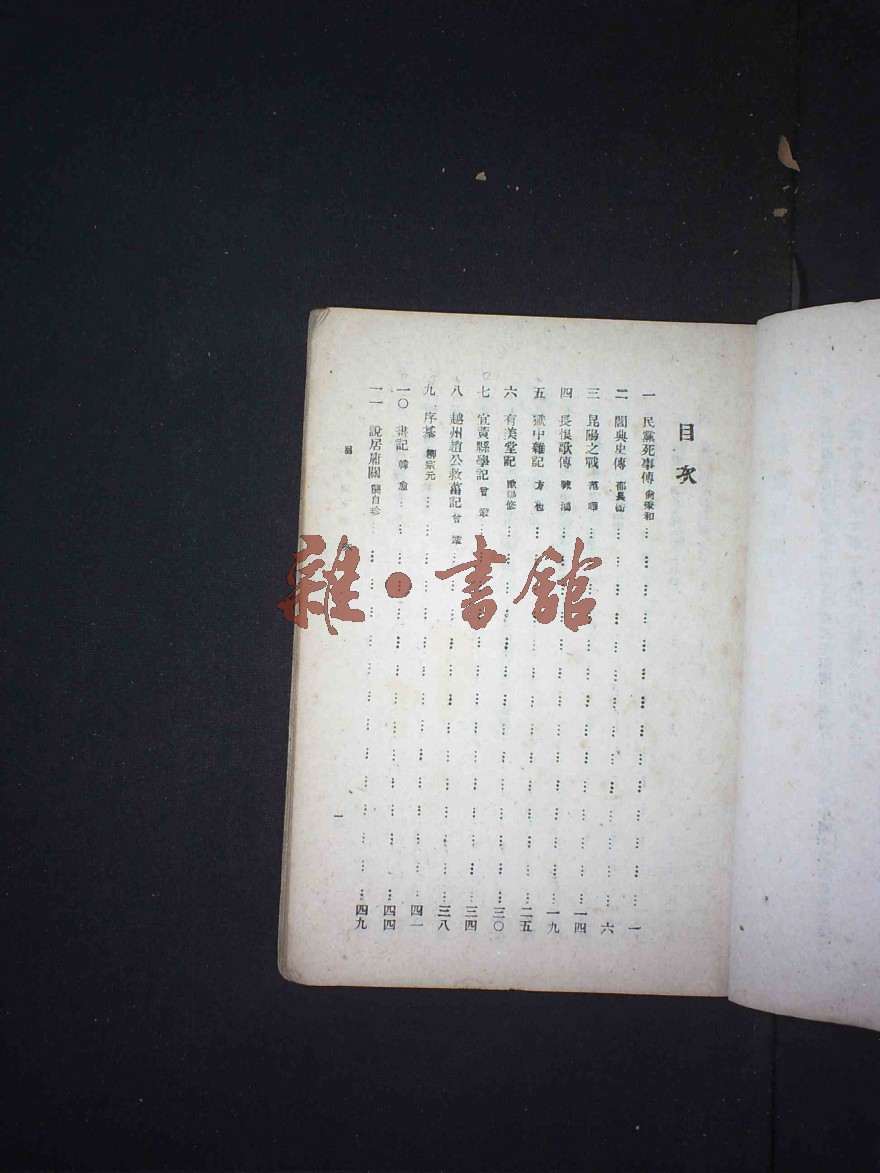 目次
一 民黨死事傳 俞秉和 一
二 閻典史傳 邵長蘅 六
三 昆陽之戰 范曄 一四
四 長恨歌傳 陳鴻 一九
五 獄中雜記 方苞 二五
六 有美堂記 歐陽修 三〇
七 宜黃縣學記 曾鞏 三四
八 越州趙公救菑記 曾鞏 三八
九 序棊 柳宗元 四一
一〇 畫記 韓愈 四四
一一 說居庸關 龔自珍 四九
目
一
雜·書館